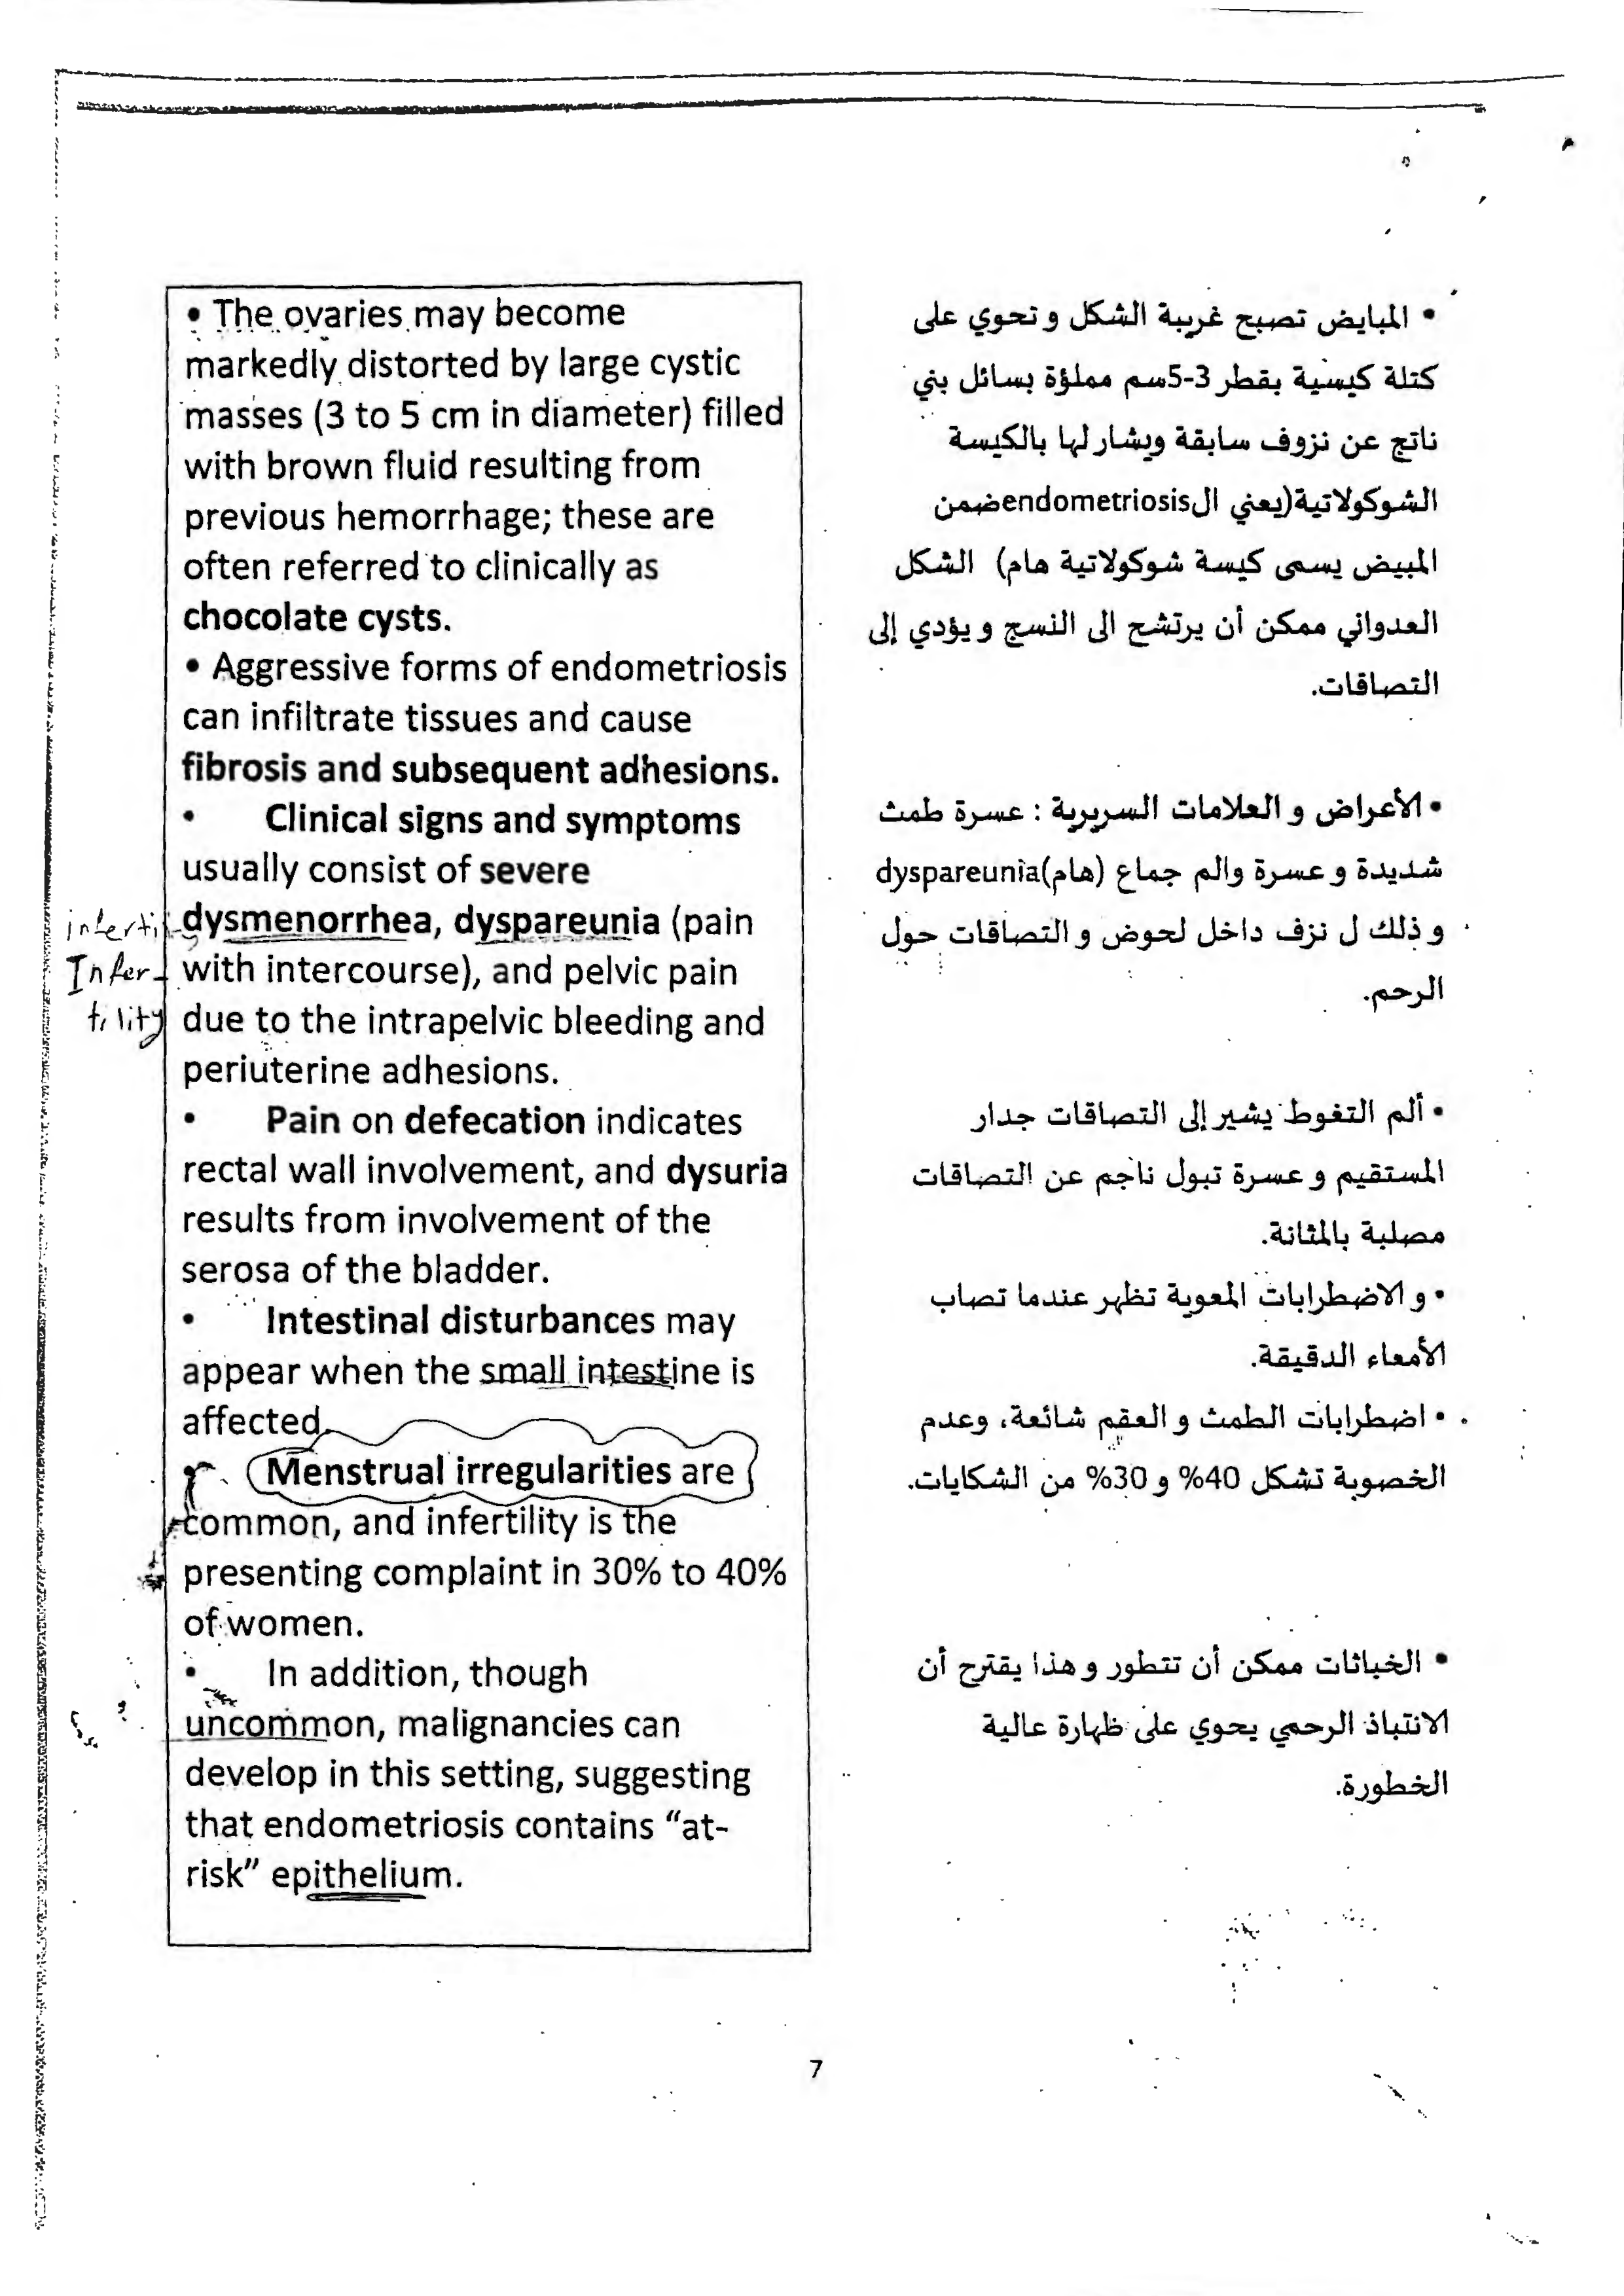 • The ovaries may become
markedly distorted by large cystic
masses (3 to 5 cm in diameter) filled
with brown fluid resulting from
previous hemorrhage; these are
often referred to clinically as
chocolate cysts.
• Aggressive forms of endometriosis
can infiltrate tissues and cause
fibrosis and subsequent adhesions.
• Clinical signs and symptoms
usually consist of severe
dysmenorrhea, dyspareunia (pain
with intercourse), and pelvic pain
due to the intrapelvic bleeding and
periuterine adhesions.
• Pain on defecation indicates
rectal wall involvement, and dysuria
results from involvement of the
serosa of the bladder.
• Intestinal disturbances may
appear when the small intestine is
affected.
• Menstrual irregularities are
common, and infertility is the
presenting complaint in 30% to 40%
of women.
• In addition, though
uncommon, malignancies can
develop in this setting, suggesting
that endometriosis contains “at-
risk” epithelium.
Infer-
tility
• المبايض تصبح غريبة الشكل و تحوي على
كتلة كيسية بقطر 3-5سم مملؤة بسائل بني
ناتج عن نزوف سابقة ويشار لها بالكيسة
الشوكولاتية(يعني الendometriosisضمن
المبيض يسمى كيسة شوكولاتية هام) الشكل
العدواني ممكن أن يرتشح الى النسج و يؤدي إلى
التصاقات.
• الأعراض و العلامات السريرية : عسرة طمث
شديدة و عسرة والم جماع (هام)dyspareunia
و ذلك ل نزف داخل لحوض و التصاقات حول
الرحم.
• ألم التغوط يشير إلى التصاقات جدار
المستقيم و عسرة تبول ناجم عن التصاقات
مصلية بالمثانة.
• و الاضطرابات المعوية تظهر عندما تصاب
الأمعاء الدقيقة.
• اضطرابات الطمث و العقم شائعة، وعدم
الخصوبة تشكل 40% و 30% من الشكايات.
• الخباثات ممكن أن تتطور و هذا يقترح أن
الانتباذ الرحمي يحوي على ظهارة عالية
الخطورة.
7